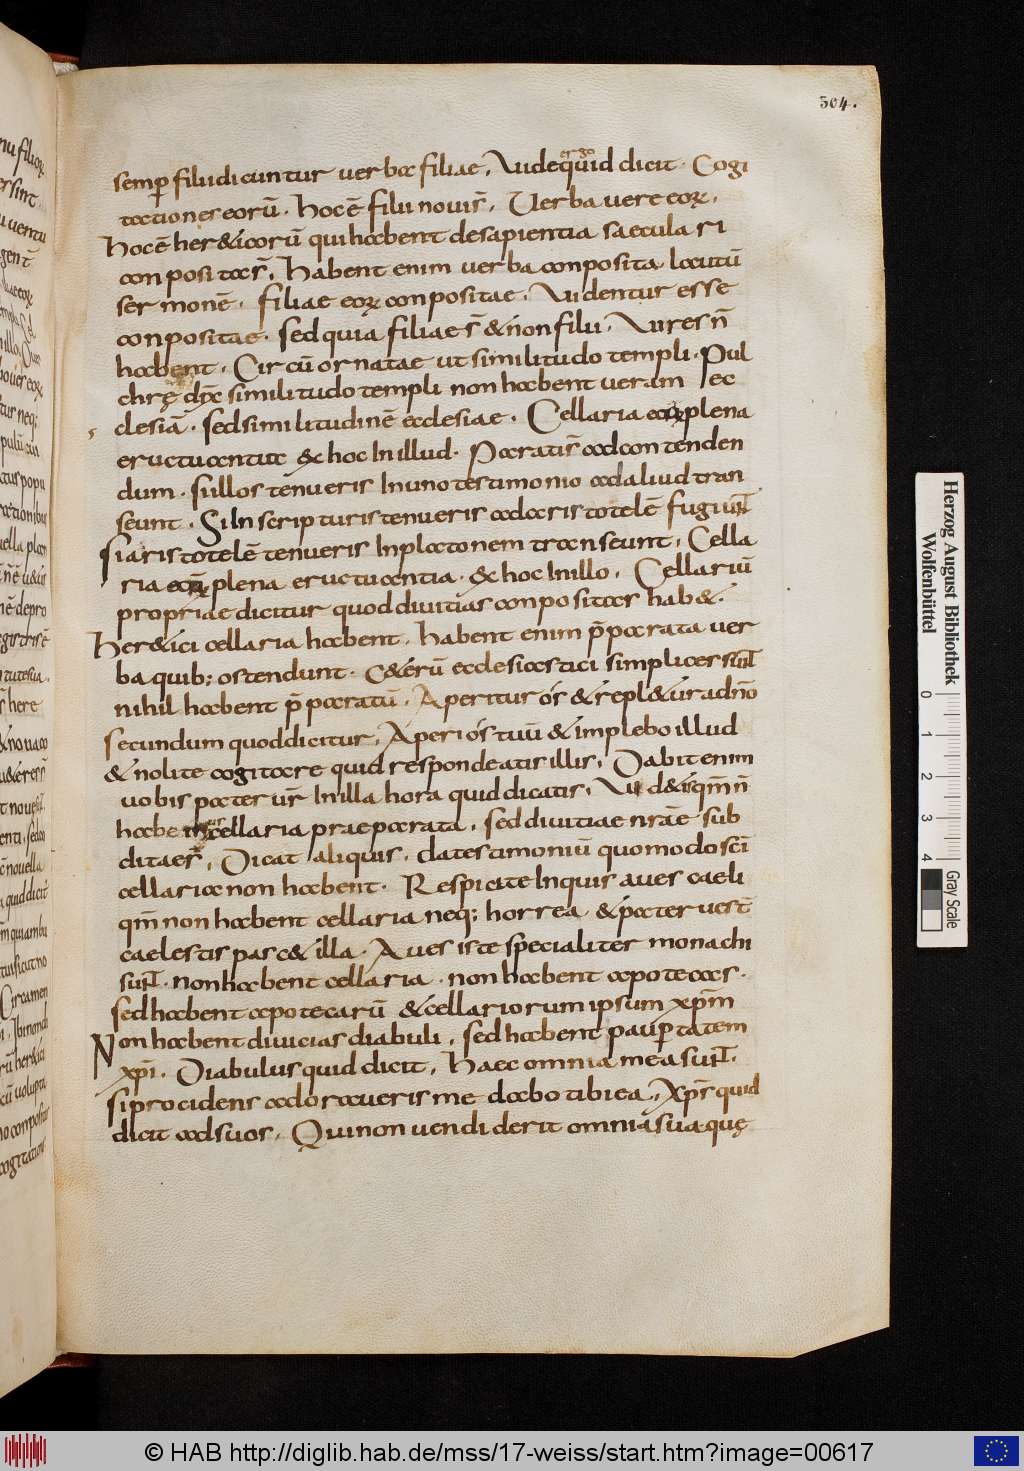 304.
semp̄ filii dicuntur uerba filiae, Uide ergo quid dicit. Cogi
tationes eorū. hoc ē filii nouis̄. Uerba uere eoꝝ.
hoc ē her&icorū qui habent de sapientia saecula ri
conpositas. Habent enim uerba conposita locutū
sermonē. filiae eoꝝ conpositae. Uidentur esse
conpositae. sed quia filiae s̄ & non filii. Uires n̄
habent. Circū ornatae ut similitudo templi. Pul
chrę dꝑ similitudo templi non habent ueram ec
clesiā. sed similitudinē ecclesiae. Cellaria eoꝝ plena
eructuantia & hoc In illud. Paratis̄ ad conten den
dum. si illos tenueris In uno testimonio ad aliud tran
seunt. Si In scripturis tenueris ad aristotelē fugiunt
si aristotelē tenueris In platonem transeunt. Cella
ria eoꝝ plena eructuantia. & hoc In illo. Cellariū
propriae dicitur quod diuitias conpositas hab&.
her&ici cellaria habent. habent enim p̄parata uer
ba quib; ostendunt. C&erū ecclesiastici simplices sunt
nihil habent p̄paratū. Aperitur os & repl&ur a dn̄o
secundum quod dicitur. Aperi os tuū & implebo illud
& nolite cogitare quid respondeatis illis. Dabit enim
uobis pater ur̄ In illa hora quid dicatis. Uid&is qm̄ n̄
habentur cellaria praeparata. sed diuitiae nr̄ae sub
ditae s̄. Dicat aliquis. da testimoniū quomodo sc̄i
cellaria non habent. Respicite Inquis aues caeli
qm̄ non habent cellaria neq; horrea. & pater uest̄
caelestis pasc& illa. Aues iste specialiter monachi
sunt. non habent cellaria. non habent apotecas.
sed habent apotecarū & cellariorum ipsum xp̄m
Non habent diuicias diabuli. sed habent paup̄tatem
xp̄i. Diabulus quid dicit. Haec omnia mea sunt.
si procidens adoraueris me dabo tibi ea. Xp̄s quid
dicit ad suos. Qui non uendiderit omnia sua quę
Herzog August Bibliothek
Wolfenbüttel
0 1 2 3 4 Gray Scale
© HAB http://diglib.hab.de/mss/17-weiss/start.htm?image=00617